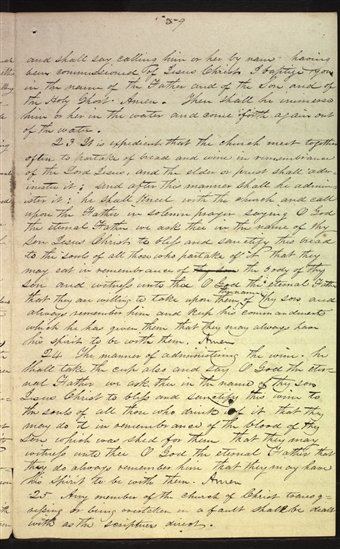 159
and shall say calling him or her by name: having
been commissioned of Jesus Christ I baptize you
in the name of the Father and of the Son and of
the Holy Ghost Amen. Then shall he immerse
him or her in the water and come forth again out
of the water.
23 It is expedient that the church meet together
often to partake of bread and wine in remembrance
of the Lord Jesus, and the elder or priest shall admin-
inister it; and after this manner shall he admin-
ister it; he shall kneel with the church and call
upon the Father in solemn prayer saying O God
the eternal Father we ask thee in the name of thy
Son Jesus Christ to bless and sanctify this bread
to the souls of all those who partake of it that they
may eat in remembrance of the body of thy
son and witness unto thee O God the eternal Father
that they are willing to take upon them the name of thy son and
always remember him and keep his commandments
which he has given them that they may always have
his spirit to be with them. Amen
24 The manner of administering the wine. he
shall take the cup also and say O God the eter-
nal Father we ask thee in the name of thy son
Jesus Christ to bless and sanctify this wine to
the souls of all those who drink of it that they
may do it in remembrance of the blood of thy
Son which was shed for them that they may
witness unto thee O God the eternal Father that
they do always remember him that they may have
his Spirit to be with them. Amen
25 Any member of the church of Christ transg-
ressing or being overtaken in a fault shall be dealt
with as the scripture direct.